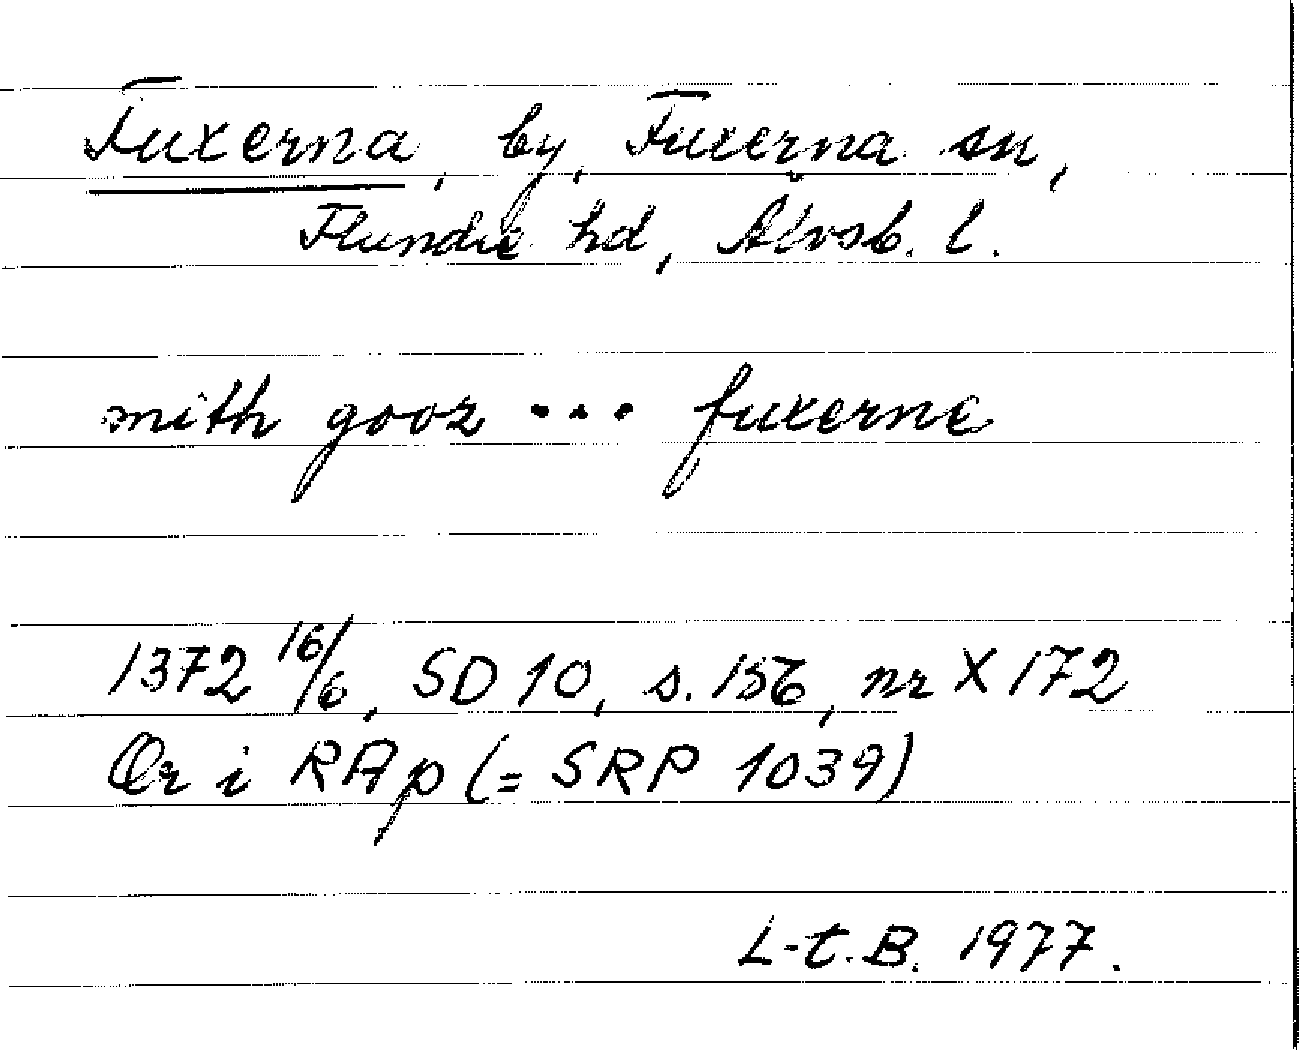 Fuxerna, by, Fuxerna sn,
Flundre hd, Älvsb. l.
mith gooz ... fuxerne
1372 16/6, SD 10, s. 156, nr X 172
Or i RAp (= SRP 1039)
L-t. B. 1977.